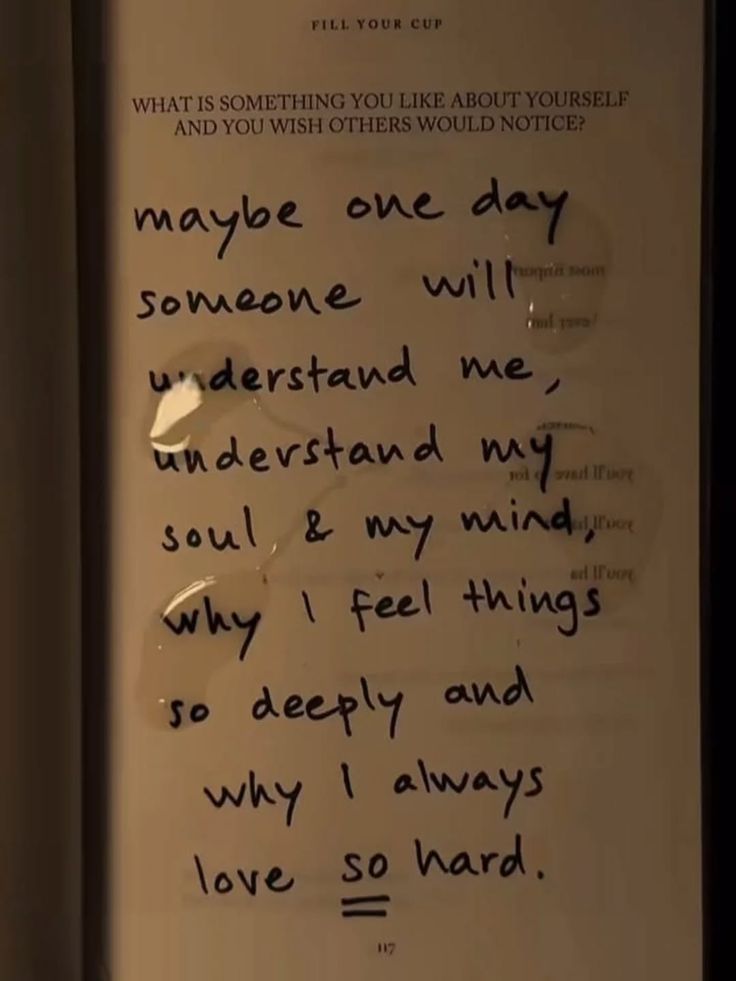 FILL YOUR CUP
WHAT IS SOMETHING YOU LIKE ABOUT YOURSELF
AND YOU WISH OTHERS WOULD NOTICE?
maybe one day
someone will
understand me,
understand my
soul & my mind,
why I feel things
so deeply and
why I always
love so hard.
117